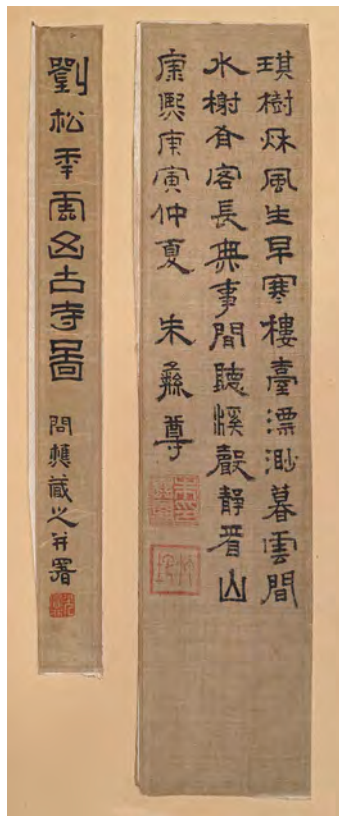 琪樹秌風生早寒樓臺漂渺暮雲間
水榭有客長無事閒聽溪聲靜看山
康熙庚寅仲夏 朱彝尊
竹垞
劉松秊雲山古寺圖
問蘧藏之并署